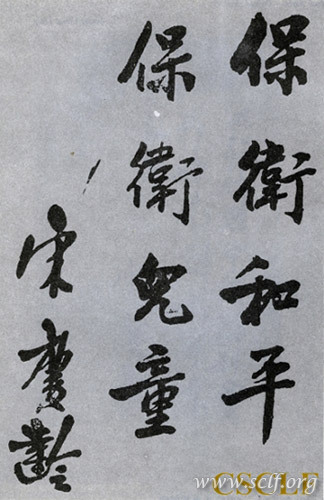 保衛和平
保衛兒童
宋慶齡
www.sclf.org
CSCLF